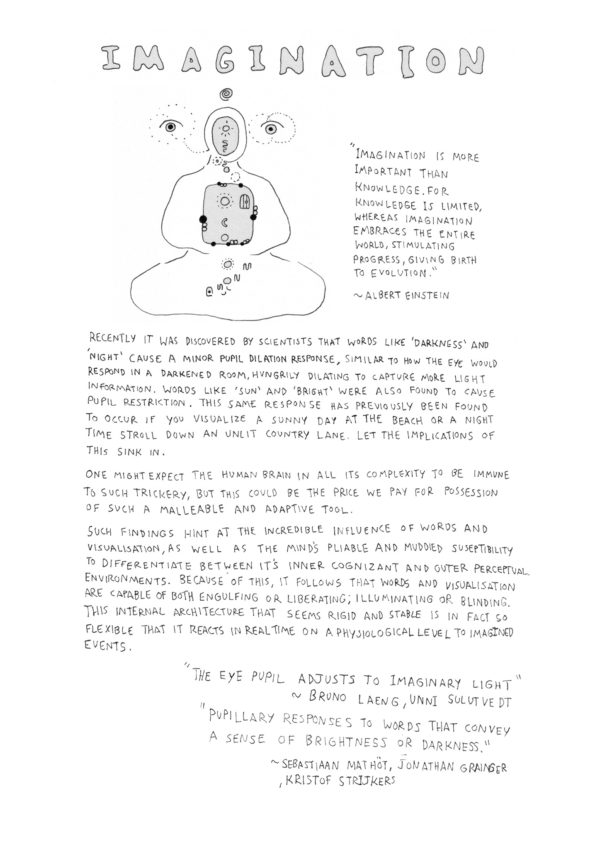 IMAGINATION
"IMAGINATION IS MORE
IMPORTANT THAN
KNOWLEDGE. FOR
KNOWLEDGE IS LIMITED,
WHEREAS IMAGINATION
EMBRACES THE ENTIRE
WORLD, STIMULATING
PROGRESS, GIVING BIRTH
TO EVOLUTION."
~ ALBERT EINSTEIN
RECENTLY IT WAS DISCOVERED BY SCIENTISTS THAT WORDS LIKE 'DARKNESS' AND
'NIGHT' CAUSE A MINOR PUPIL DILATION RESPONSE, SIMILAR TO HOW THE EYE WOULD
RESPOND IN A DARKENED ROOM, HUNGRILY DILATING TO CAPTURE MORE LIGHT
INFORMATION. WORDS LIKE 'SUN' AND 'BRIGHT' WERE ALSO FOUND TO CAUSE
PUPIL RESTRICTION. THIS SAME RESPONSE HAS PREVIOUSLY BEEN FOUND
TO OCCUR IF YOU VISUALIZE A SUNNY DAY AT THE BEACH OR A NIGHT
TIME STROLL DOWN AN UNLIT COUNTRY LANE. LET THE IMPLICATIONS OF
THIS SINK IN.
ONE MIGHT EXPECT THE HUMAN BRAIN IN ALL ITS COMPLEXITY TO BE IMMUNE
TO SUCH TRICKERY, BUT THIS COULD BE THE PRICE WE PAY FOR POSSESSION
OF SUCH A MALLEABLE AND ADAPTIVE TOOL.
SUCH FINDINGS HINT AT THE INCREDIBLE INFLUENCE OF WORDS AND
VISUALISATION, AS WELL AS THE MIND'S PLIABLE AND MUDDIED SUSEPTIBILITY
TO DIFFERENTIATE BETWEEN IT'S INNER COGNIZANT AND OUTER PERCEPTUAL
ENVIRONMENTS. BECAUSE OF THIS, IT FOLLOWS THAT WORDS AND VISUALISATION
ARE CAPABLE OF BOTH ENGULFING OR LIBERATING; ILLUMINATING OR BLINDING.
THIS INTERNAL ARCHITECTURE THAT SEEMS RIGID AND STABLE IS IN FACT SO
FLEXIBLE THAT IT REACTS IN REAL TIME ON A PHYSIOLOGICAL LEVEL TO IMAGINED
EVENTS.
"THE EYE PUPIL ADJUSTS TO IMAGINARY LIGHT"
~ BRUNO LAENG, UNNI SULUTVEDT
"PUPILLARY RESPONSES TO WORDS THAT CONVEY
A SENSE OF BRIGHTNESS OR DARKNESS."
~ SEBASTIAAN MATHÔT, JONATHAN GRAINGER
, KRISTOF STRIJKERS